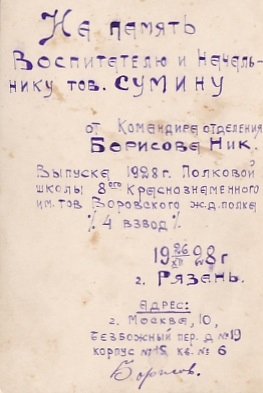 На память
Воспитателю и началь-
нику тов. Сумину
от Командира отделения
Борисова Ник.
Выпуска 1928 г. Полковой
школы 8ого Краснознаменного
им. тов Воровского ж.д. полка
% 4 взвод %
19 26/XII 28 г
г. Рязань.
Адрес:
г. Москва, 10,
Безбожный пер. д №19
корпус №15, кв. № 6
Борисов.